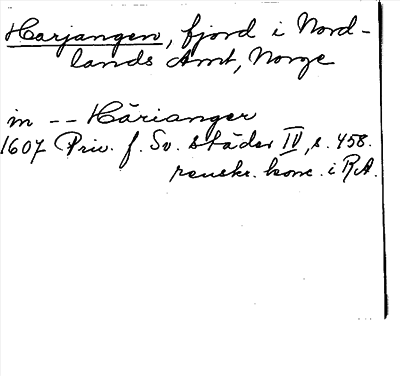 Harjangen, fjord i Nord-
lands Amt, Norge
in -- Härianger
1607 Priv. f. Sv. städer IV, s. 458.
renskr. konc. i R.A.